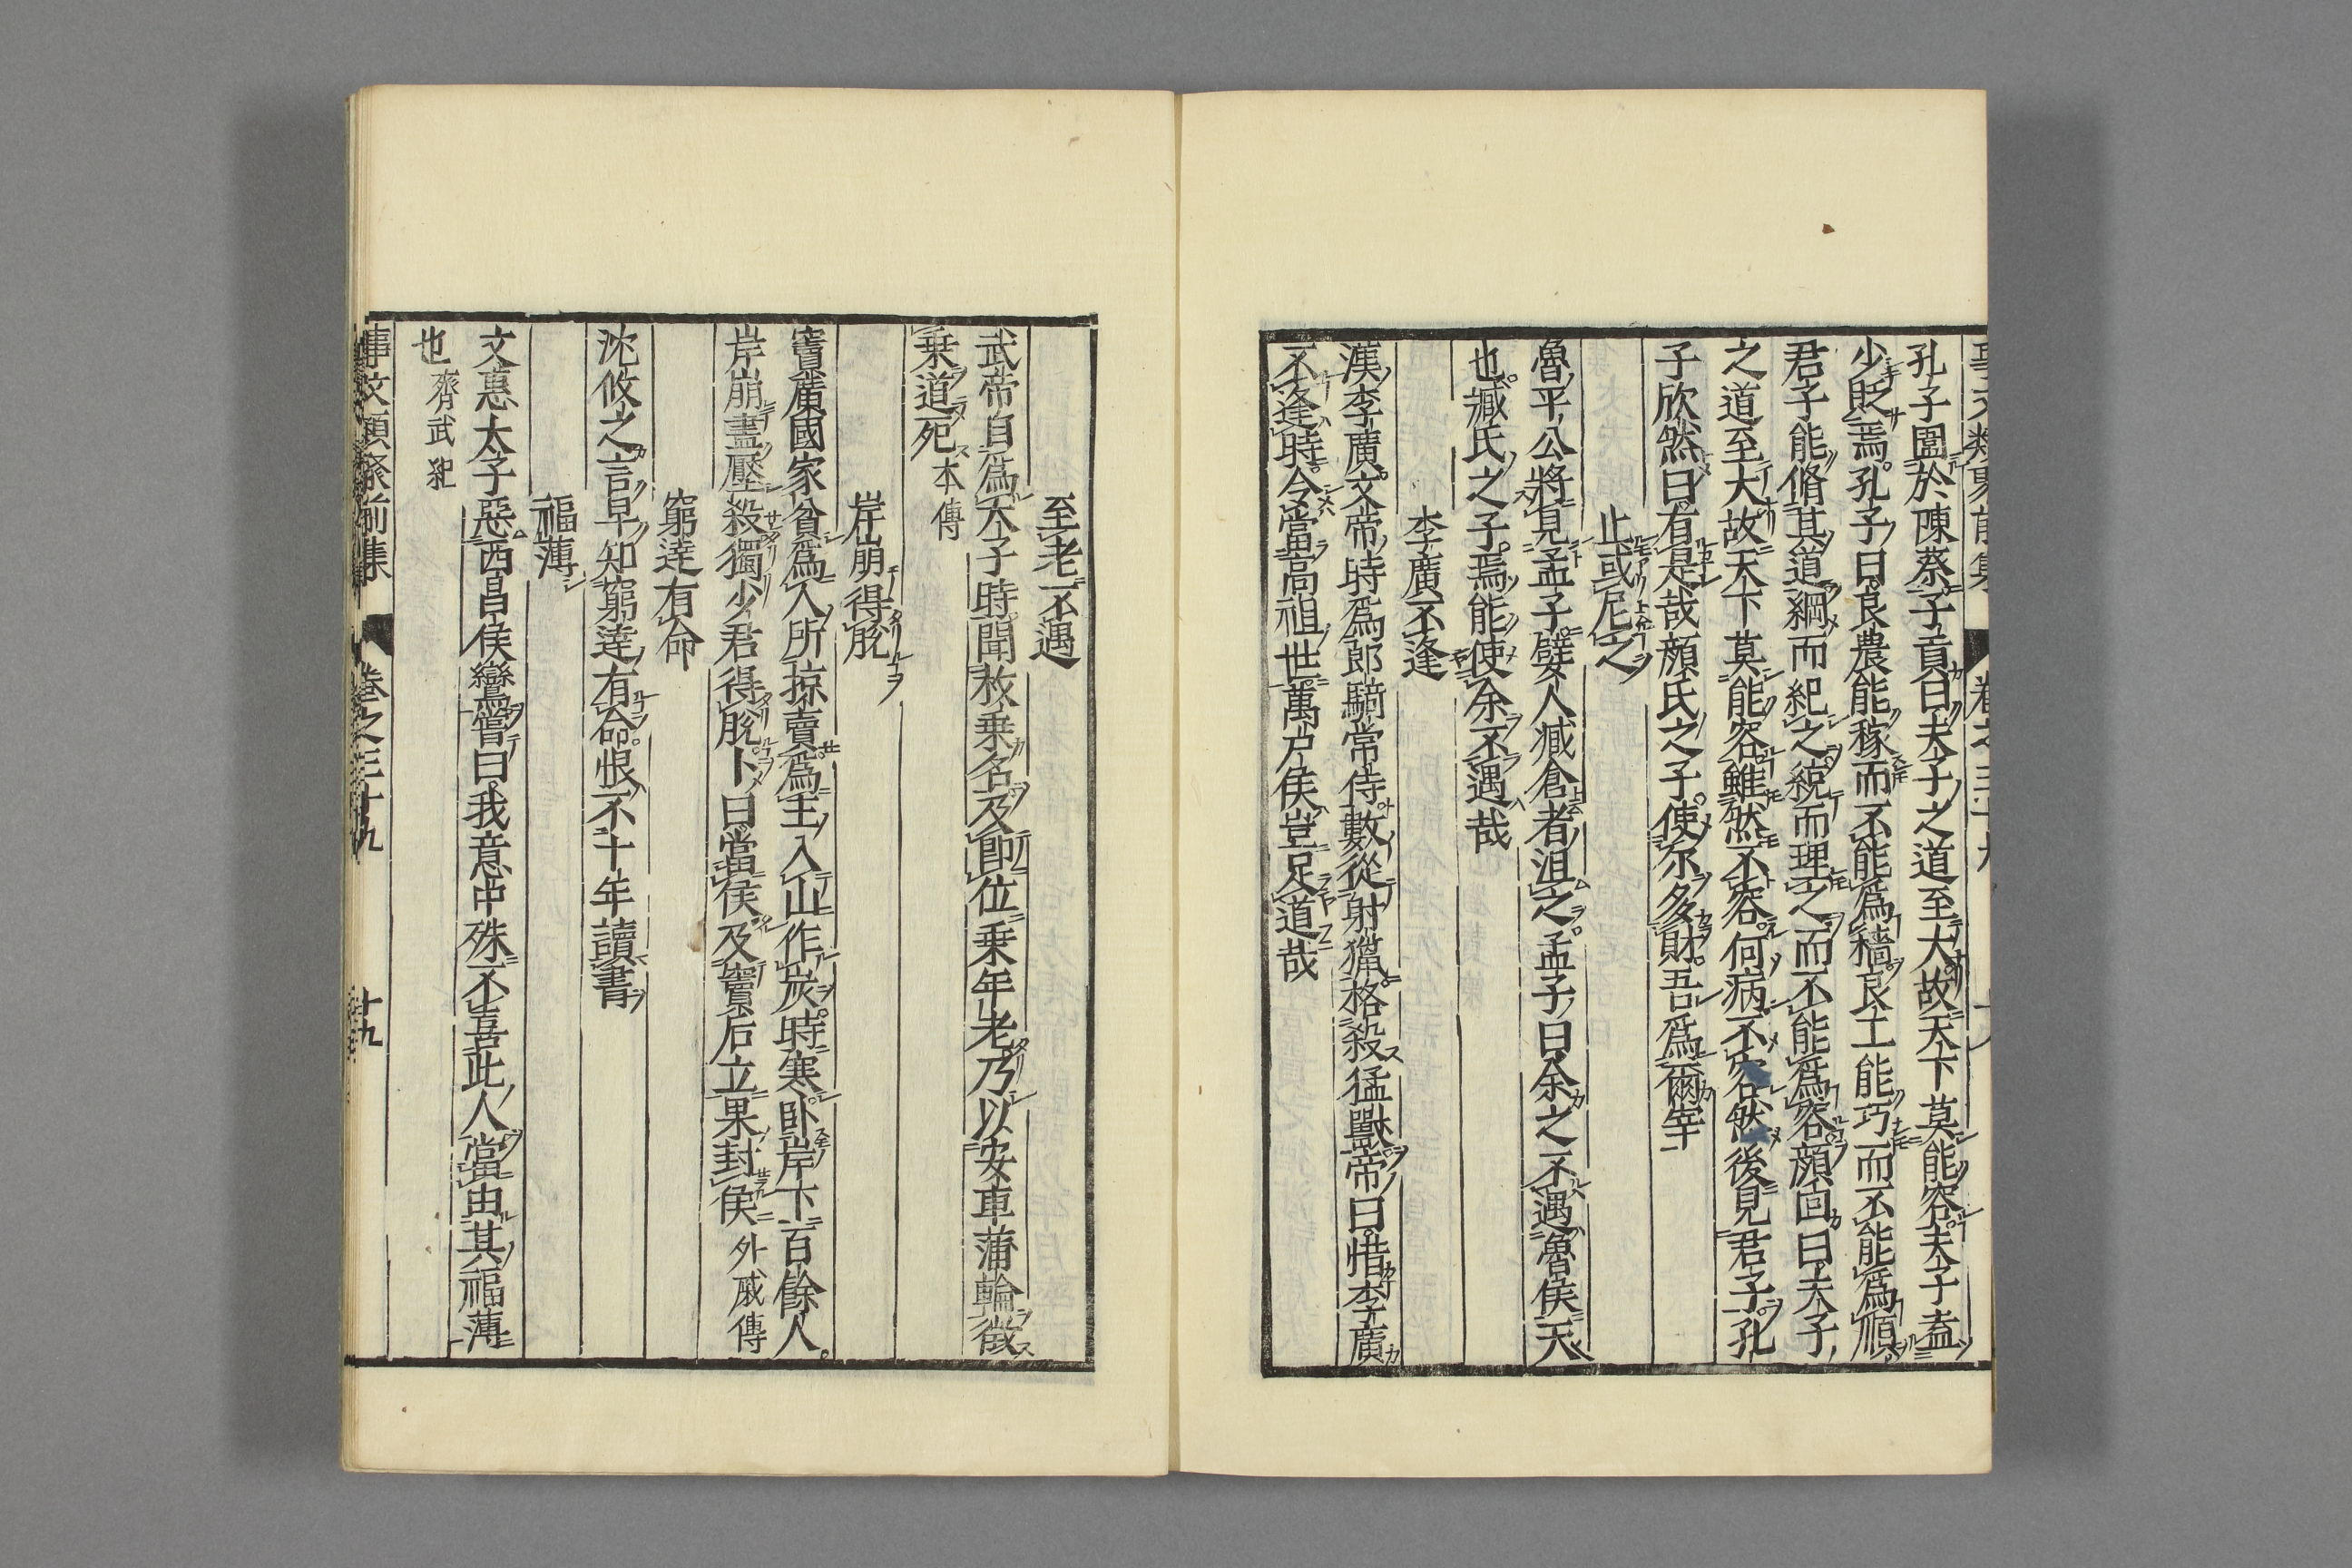 孔子圍於陳蔡子貢曰夫子之道至大故天下莫能容夫子盍
少貶焉孔子曰良農能稼而不能爲穡良工能巧而不能爲順
君子能脩其道綱而紀之統而理之而不能爲容顔回曰夫子
之道至大故天下莫能容雖然不容何病不容然後見君子孔
子欣然曰有是哉顔氏之子使尓多財吾爲爾宰
止或尼之
魯平公將見孟子嬖人臧倉者沮之孟子曰余之不遇魯侯天
也臧氏之子焉能使余不遇哉
李廣不逢
漢李廣文帝時爲郎騎常侍數從射獵格殺猛獸帝曰惜李廣
不逢時令當高祖世萬户侯豈足道哉
至老不遇
武帝自爲太子時聞枚乗名及卽位乗年老乃以安車蒲輪徴
乗道死 本傳
岸崩得脫
竇廣國家貧爲人所掠賣爲主入山作炭時寒卧岸下百餘人
岸崩盡壓殺獨少君得脫卜曰當侯及竇后立果封侯 外戚傳
窮達有命
沈攸之言早知窮達有命恨不十年讀書
福薄
文惠太子惡西昌侯鸞嘗曰我意中殊不喜此人當由其福薄
也 齊武紀
事文類聚前集 卷之三十九 十九